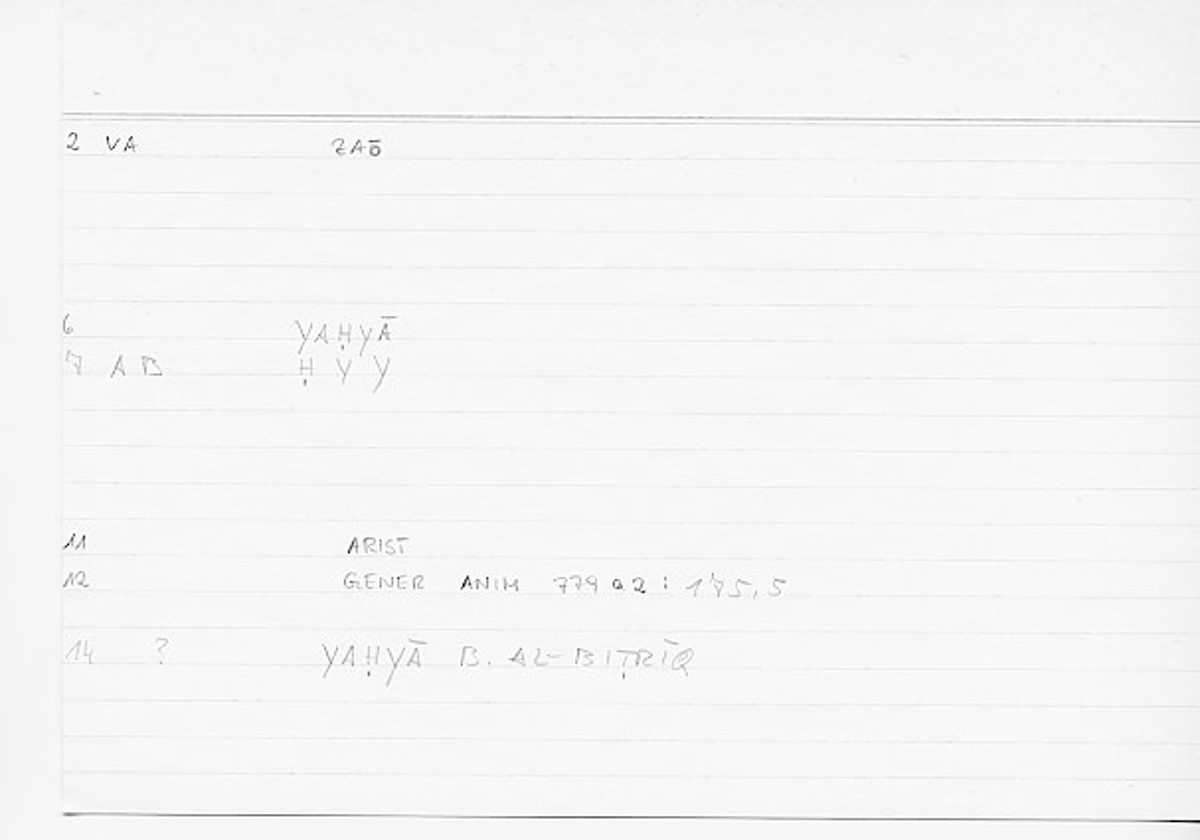 2 VA ZAŌ
6 YAḤYĀ
7 AB Ḥ Y Y
11 ARIST
12 GENER ANIM 779 a 2 : 175,5
14 ? YAḤYĀ B. AL-BIṬRĪQ